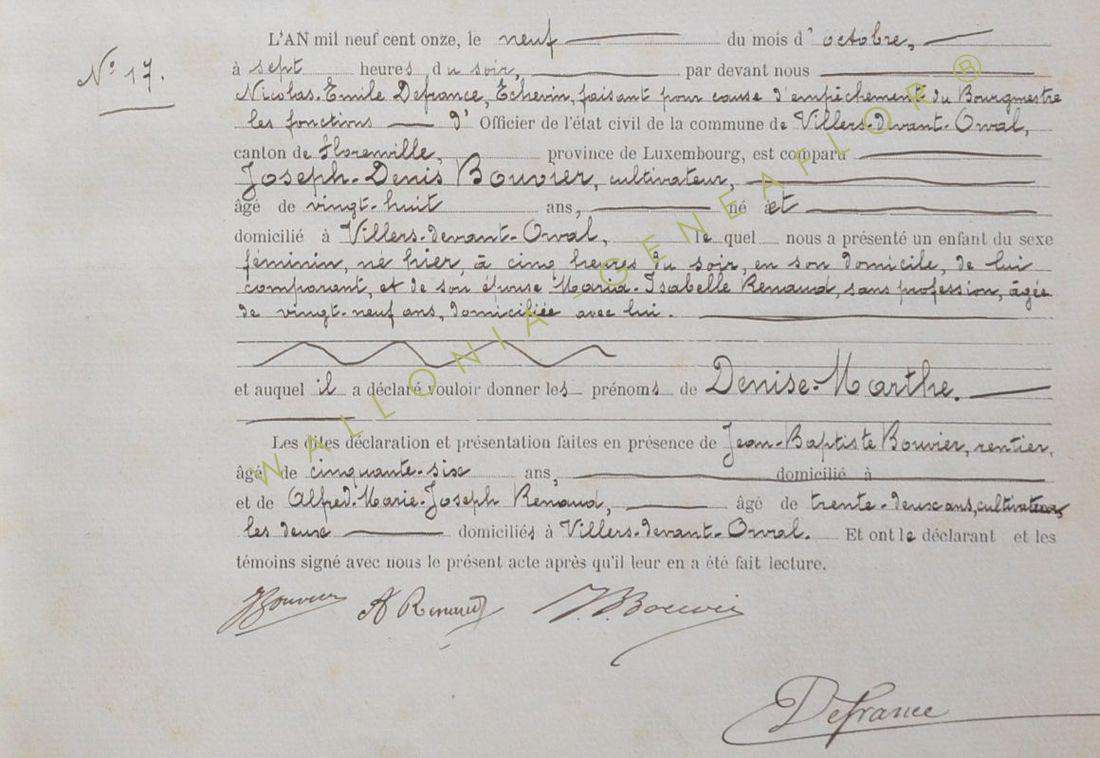 N° 17.
L'AN mil neuf cent onze, le neuf du mois d'octobre,
à sept heures du soir, par devant nous
Nicolas-Emile Defrance, Echevin, faisant pour cause d'empêchement du Bourgmestre
les fonctions d'Officier de l'état civil de la commune de Villers-devant-Orval,
canton de Florenville, province de Luxembourg, est comparu
Joseph-Denis Bouvier, cultivateur,
âgé de vingt-huit ans, né et
domicilié à Villers-devant-Orval, lequel nous a présenté un enfant du sexe
féminin, né hier, à cinq heures du soir, en son domicile, de lui
comparant, et de son épouse Maria-Isabelle Renaud, sans profession, âgée
de vingt-neuf ans, domiciliée avec lui.
et auquel il a déclaré vouloir donner les prénoms de Denise-Marthe.
Les dites déclaration et présentation faites en présence de Jean-Baptiste Bouvier, rentier,
âgé de cinquante-six ans, domicilié à
et de Alfred-Marie-Joseph Renaud, âgé de trente-deux ans, cultivateur
les deux domiciliés à Villers-devant-Orval. Et ont le déclarant et les
témoins signé avec nous le présent acte après qu'il leur en a été fait lecture.
JBouvier A Renaud J.B. Bouvier
Defrance
WALLONIA-GENEAFLORE®